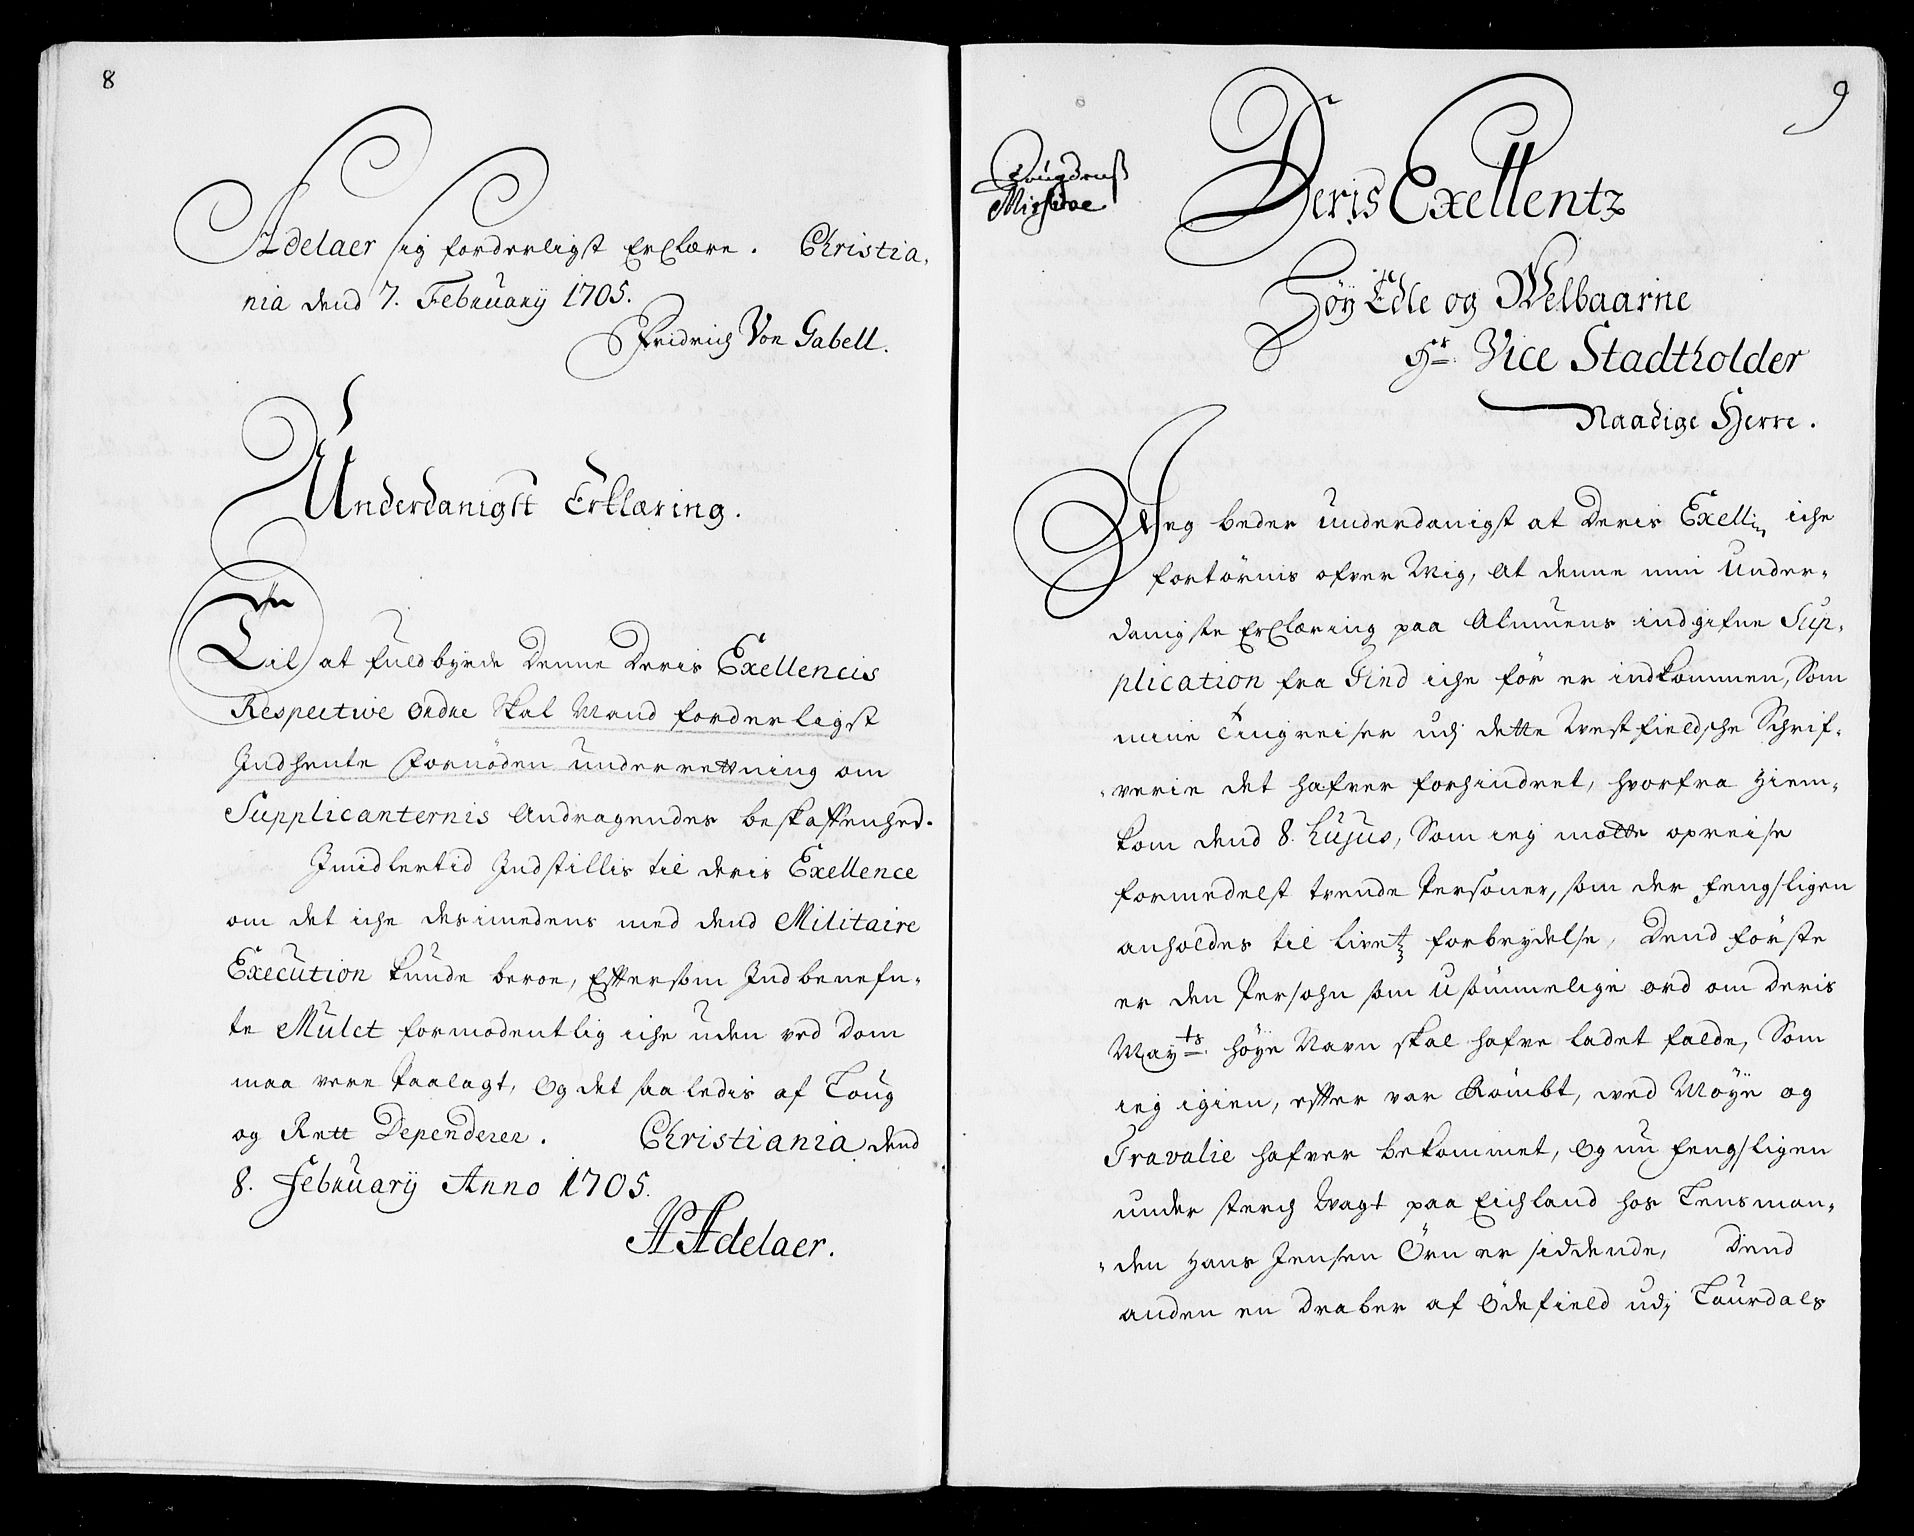 8
Adelaer sig forderligst Erclære. Christia,
nia dend 7. February 1705.
Fridrich Von Gabell.
Underdanigst Erklæring.
Til at fuldbyrde Denne Deris Exellencis
Respective Ordre skal Mand forderligst
Indhente fornøden underrettning om
Supplicanternis Andragendes beskaffenhed.
Imidlertid Indstillis til deris Exellence
om det iche desimedens med dend Militaire
Execution kunde beroe, Efftersom Indbenefn,
te Mulct formodentlig iche uden ved Dom
maa vere Paalagt, og det saaledis af Loug
og Rett Dependerer. Christiania dend
8. February Anno 1705.
A Adelaer.
9
Deris Exellentz
Høy Edle og Welbaarne
Hr. Vice Stadtholder
Naadige Herre.
Jeg beder underdanigst at Deris Exell: iche
fortørnis ofver Mig, at denne min Under,
danigste Erclæring paa Almuens indgifne Sup,
plication fra Find iche før er indkommen, Som
mine Tingreiser udj dette Westfieldsche Schrif,
verie det hafver forhindret, hvorfra Hiem,
kom dend 8. hujus, Som ieg motte opreise
formedelst trende Personer, som der fengsligen
anholdes til livetz forbrydelse, Dend første
er den Persohn som Usømmelige ord om Deris
Mayts. høye Navn skal hafve ladet falde, Som
ieg igien, efter var Rømbt, med Møye og
Travalie hafver bekommet, og nu fengsligen
under sterch Wagt paa Eichland hos Lensman,
den Hans Jensen Örn er siddende, Dend
anden en Draber af Ödefield udj Laurdals